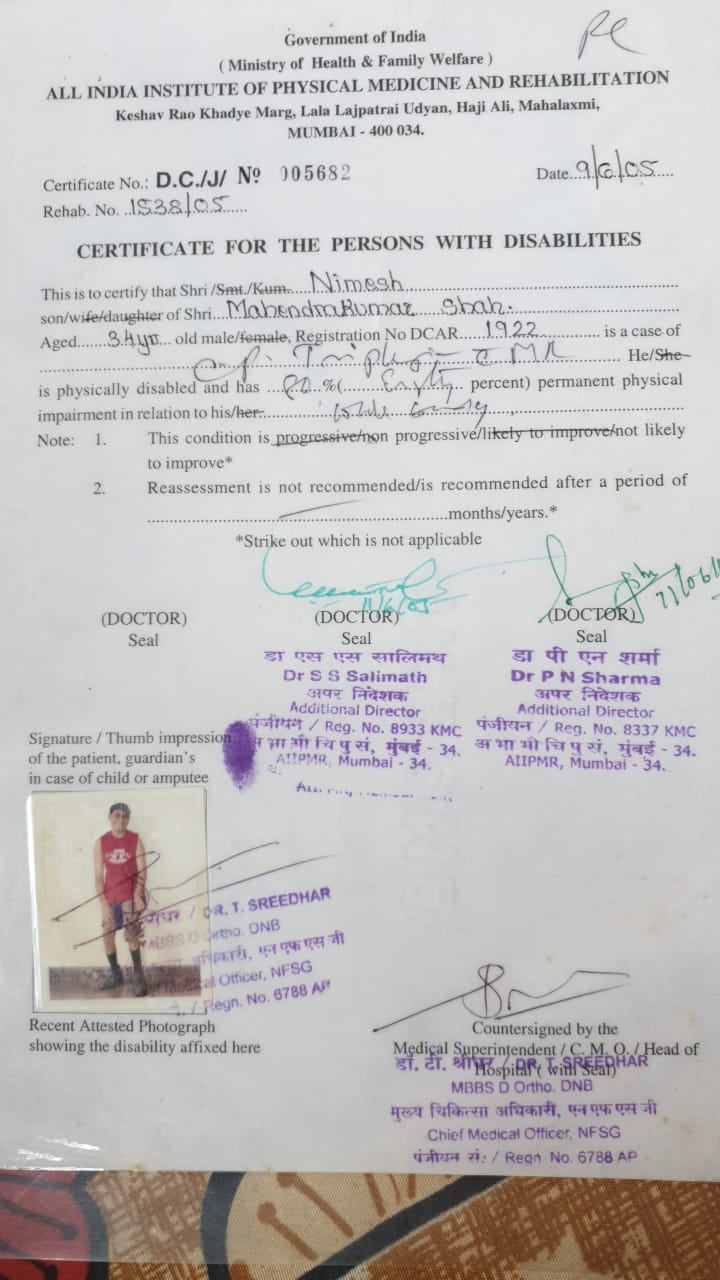 Government of India
( Ministry of Health & Family Welfare )
ALL INDIA INSTITUTE OF PHYSICAL MEDICINE AND REHABILITATION
Keshav Rao Khadye Marg, Lala Lajpatrai Udyan, Haji Ali, Mahalaxmi,
MUMBAI - 400 034.
Certificate No.: D.C./J/ Nº 005682
Date...9/6/05....
Rehab. No. ..1538/05.....
CERTIFICATE FOR THE PERSONS WITH DISABILITIES
This is to certify that Shri /Smt./Kum....Nimesh
son/wife/daughter of Shri...Mahendrakumar Shah.
Aged......34yr... old male/female, Registration No DCAR.....1922............ is a case of
Triplegia MR He/She
is physically disabled and has ..80..%( Eighty percent) permanent physical
impairment in relation to his/her....whole body
Note: 1. This condition is progressive/non progressive/likely to improve/not likely
to improve*
2. Reassessment is not recommended/is recommended after a period of
.............months/years.*
*Strike out which is not applicable
11/6/05
(DOCTOR) (DOCTOR) (DOCTOR)
Seal Seal Seal
डा एस एस सालिमथ
Dr S S Salimath
अपर निदेशक
Additional Director
पंजीयन / Reg. No. 8933 KMC
अ भा भौ चि पु सं, मुंबई - 34.
AIIPMR, Mumbai - 34.
डा पी एन शर्मा
Dr P N Sharma
अपर निदेशक
Additional Director
पंजीयन / Reg. No. 8337 KMC
अ भा भौ चि पु सं, मुंबई - 34.
AIIPMR, Mumbai - 34.
Signature / Thumb impression
of the patient, guardian's
in case of child or amputee
DR. T. SREEDHAR
MBBS D Ortho. DNB
अधिकारी, एन एफ एस जी
Medical Officer, NFSG
/ Regn. No. 6788 AP
Recent Attested Photograph
showing the disability affixed here
Countersigned by the
Medical Superintendent / C. M. O. / Head of
Hospital ( with Seal)
डॉ. टी. श्रीधर / DR. T. SREEDHAR
MBBS D Ortho. DNB
मुख्य चिकित्सा अधिकारी, एन एफ एस जी
Chief Medical Officer, NFSG
पंजीयन सं. / Regn. No. 6788 AP